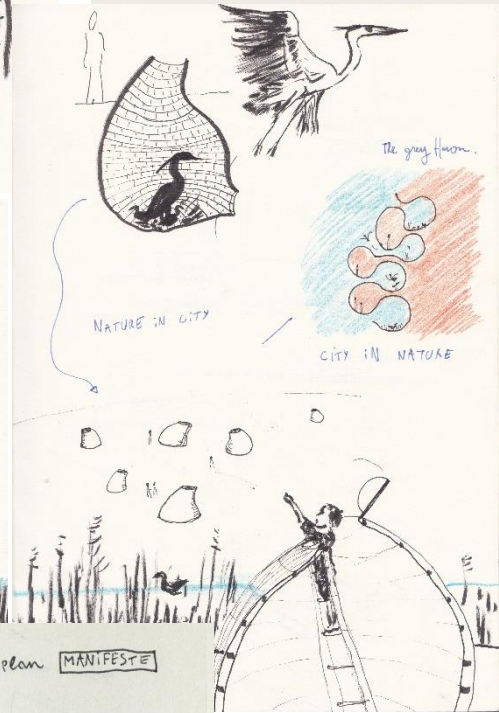 The grey Heron.
NATURE IN CITY
CITY IN NATURE
plan MANIFESTE